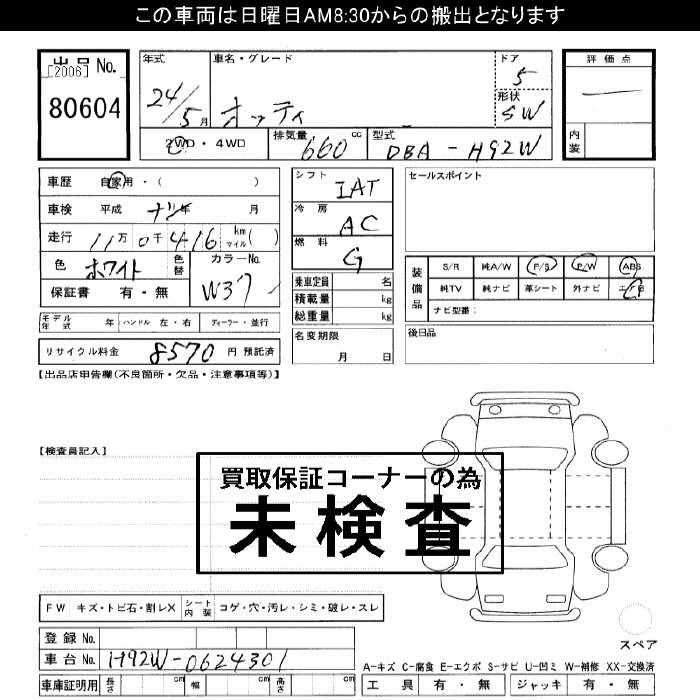 この車両は日曜日AM8:30からの搬出となります
出品 No.
[2006]
80604
年式
24/5月
車名・グレード
オッティ
ドア
5
形状
SW
評価点
内装
2WD・4WD
排気量
660 cc
型式
DBA-H92W
車歴 自家用・( )
車検 平成 ナシ年 月
走行 11万 0千 416 km マイル ( )
色 ホワイト 色替
カラーNo.
W37
保証書 有・無
モデル年式 年 ハンドル 左・右 ディーラー・並行
リサイクル料金 8570 円 預託済
シフト
IAT
冷房
AC
燃料
G
乗車定員 名
積載量 kg
総重量 kg
名変期限
月 日
セールスポイント
装備品
S/R 純A/W P/S P/W ABS
純TV 純ナビ 革シート 外ナビ
ナビ型番:
後日品
【出品店申告欄(不良箇所・欠品・注意事項等)】
【検査員記入】
買取保証コーナーの為
未検査
FW キズ・トビ石・割レX シート内装 コゲ・穴・汚レ・シミ・破レ・スレ
スペア
登録 No.
車台 No. H92W-0624301
車庫証明用 長さ cm 幅 cm 高さ cm
A-キズ C-腐食 E-エクボ S-サビ U-凹ミ W-補修 XX-交換済
工具 有・無 ジャッキ 有・無